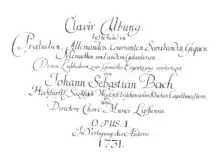 Clavir Ubung
bestehend in
Præludien, Allemanden, Couranten, Sarabanden, Giguen,
Menuetten, und andern Galanterien;
Denen Liebhabern zur Gemüths Ergoetzung verfertiget
von
Johann Sebastian Bach
Hochfürstl. Sächsisch Weisenfelsischen würcklichen Capellmeistern
und
Directore Chori Musici Lipsiensis.
OPUS 1.
In Verlegung des Autoris
1731.